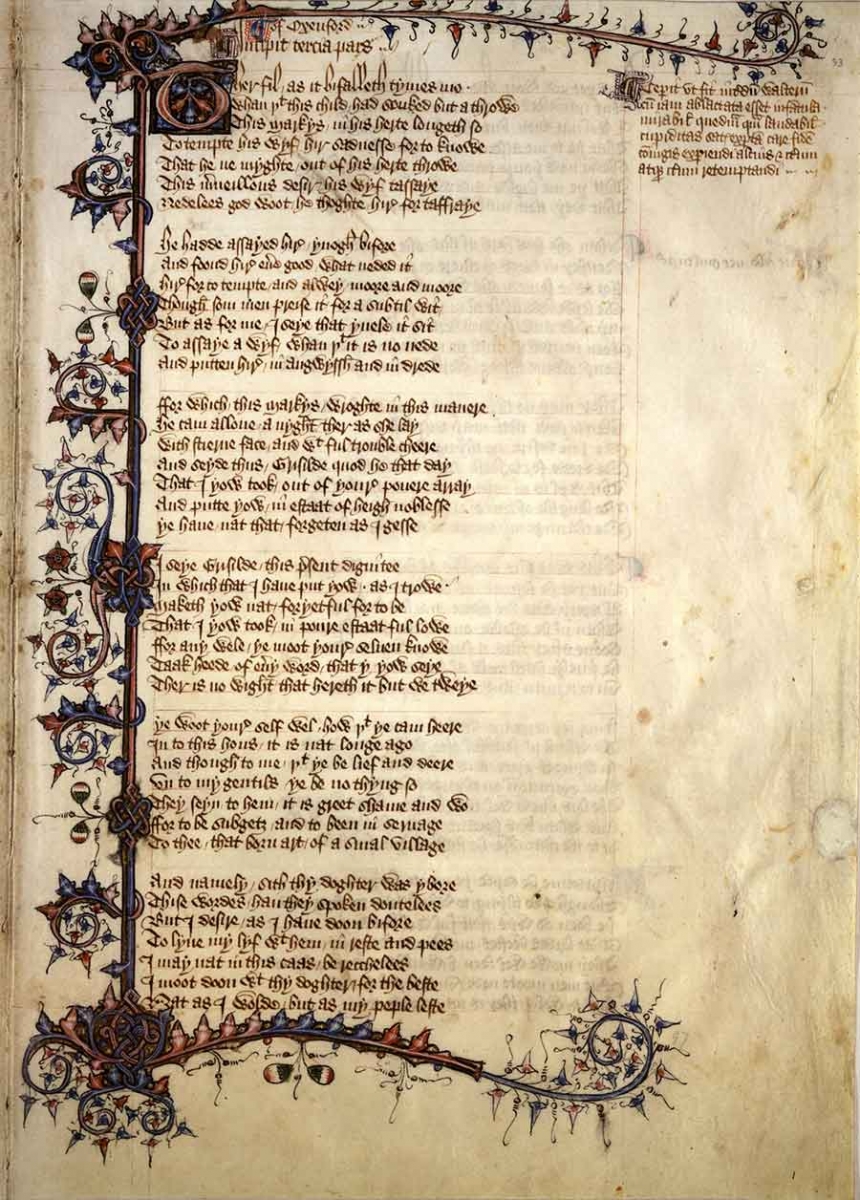 Of Oxenford
Incipit tercia pars
Ther fil, as it bifalleth tymes mo
Whan þt this child, had souked but a throwe
This markys, in his herte longeth so
To tempte his wyf, hir sadnesse for to knowe
That he ne myghte, out of his herte throwe
This m̃ueillous desir, his wyf tassaye
Nedelees god woot, he thoghte hir for taffraye
he hadde assayed hir, ynogh bifore
And foond hir eue good, what neded it
hir for to tempte, and alwey, moore and moore
Though som men preise it for a subtil wit
But as for me, I seye that yuele it sit
To assaye a wyf, whan þt it is no nede
And putten hir, in angwyssh and in drede
ffor which, this markys, wroghte in this manere
he cam allone, a nyght, ther as she lay
with stierne face, and wt ful trouble cheere
And seyde thus, Grisilde quod he that day
That I yow took, out of youre pouere array
And putte yow, in estaat of heigh noblesse
ye haue nat that, forgeten as I gesse
I seye Grisilde, this p̃sent dignitee
In which that I haue put yow · as I trowe ·
maketh yow nat, foryetful for to be
That I yow took, in poure estaat ful lowe
ffor any wele, ye moot youre seluen knowe
Taak heede of eũy word, that y yow seye
Ther is no wight, that hereth it but we tweye
ye woot youre self wel, how þt ye cam heere
In to this hous, it is nat longe ago
And though to me, þt ye be lief and deere
vn to my gentils ye be no thyng so
They seyn to hem, it is greet shame and wo
ffor to be subgetz and to been in seruage
To thee, that born art, of a smal village
And namely, sith thy doghter was ybore
Thise wordes, han they spoken doutelees
But I desire, as I haue doon bifore
To lyue my lyf wt hem, in reste and pees
I may nat in this caas, be recchelees
I moot doon wt thy doghter, for the beste
Nat as I wolde, but as my peple leste
Cepit vt fit
cum iam ablactata esset infantula
mirabil quedam laudabil
cupiditas sat expta care fide
coniugis expiendi altius &
atqȝ itum retemptandi